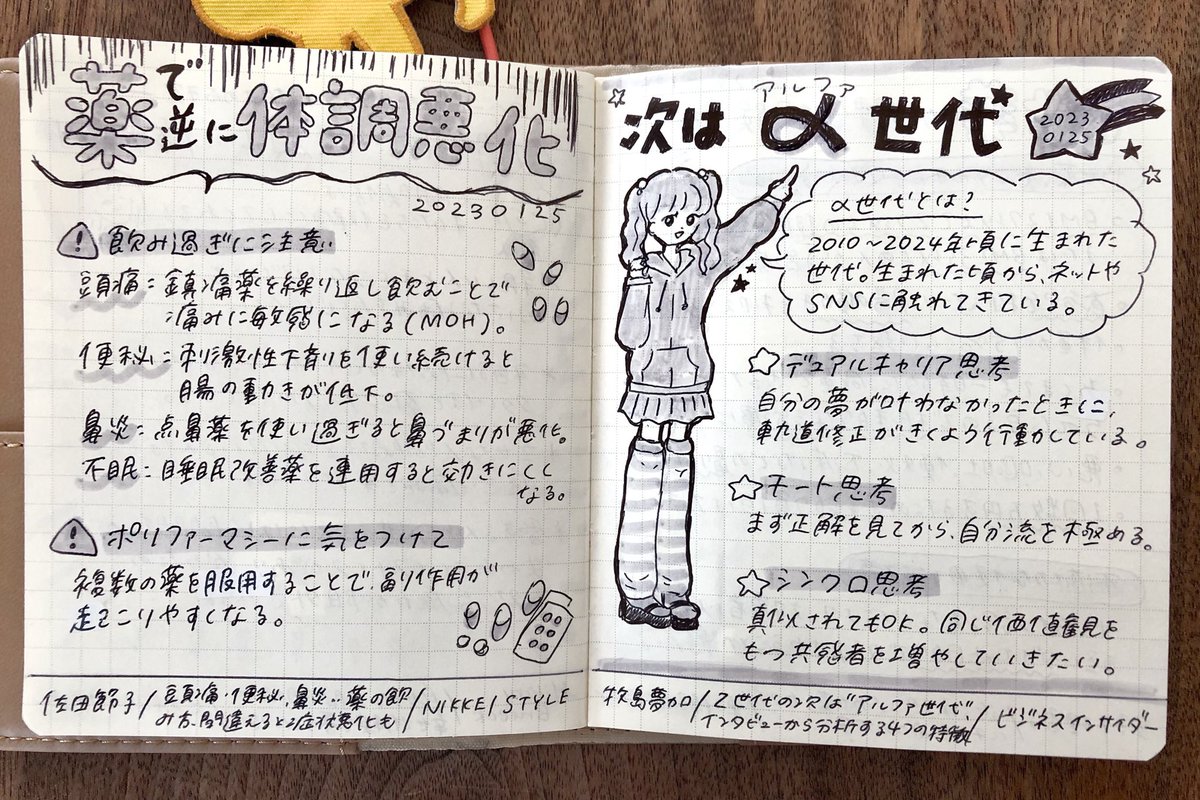 薬で逆に体調悪化
20230125
飲み過ぎに注意
頭痛：鎮痛薬を繰り返し飲むことで
痛みに敏感になる(MOH)。
便秘：刺激性下剤を使い続けると
腸の動きが低下。
鼻炎：点鼻薬を使い過ぎると鼻づまりが悪化。
不眠：睡眠改善薬を連用すると効きにくく
なる。
ポリファーマシーに気をつけて
複数の薬を服用することで、副作用が
起こりやすくなる。
佐田節子/頭痛・便秘、鼻炎‥薬の飲
み方、間違えると症状悪化も/NIKKEI STYLE
アルファ
次はα世代
2023
0125
α世代とは?
2010～2024年頃に生まれた
世代。生まれた頃から、ネットや
SNSに触れてきている。
デュアルキャリア思考
自分の夢が叶わなかったときに、
軌道修正がきくよう行動している。
チート思考
まず正解を見てから、自分流を極める。
シンクロ思考
真似されてもOK。同じ価値観を
もつ共感者を増やしていきたい。
牧島夢加/Z世代の次は"アルファ世代"
インタビューから分析する4つの特徴/ビジネスインサイダー